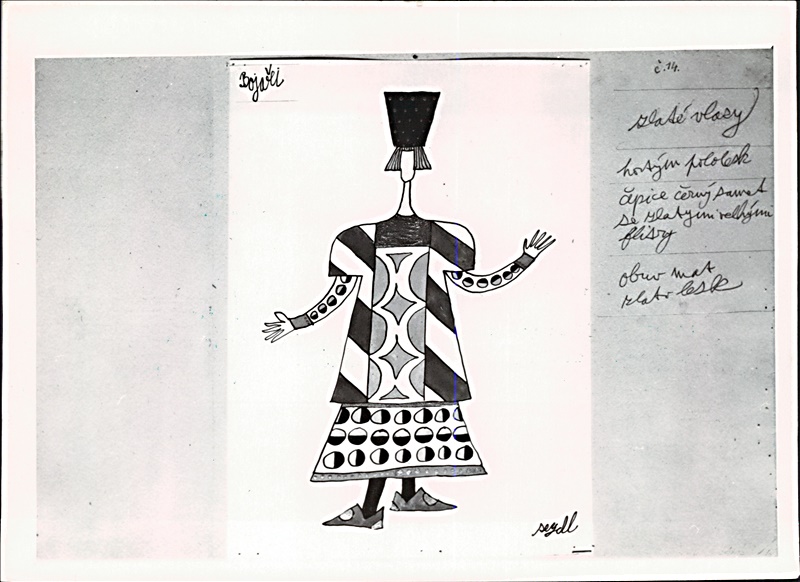 Bojaři
č. 14.
zlaté vlasy
kostým pololesk
čapice černý samet
se zlatými velkými
flitry
obuv mat
zlato lesk
seydl